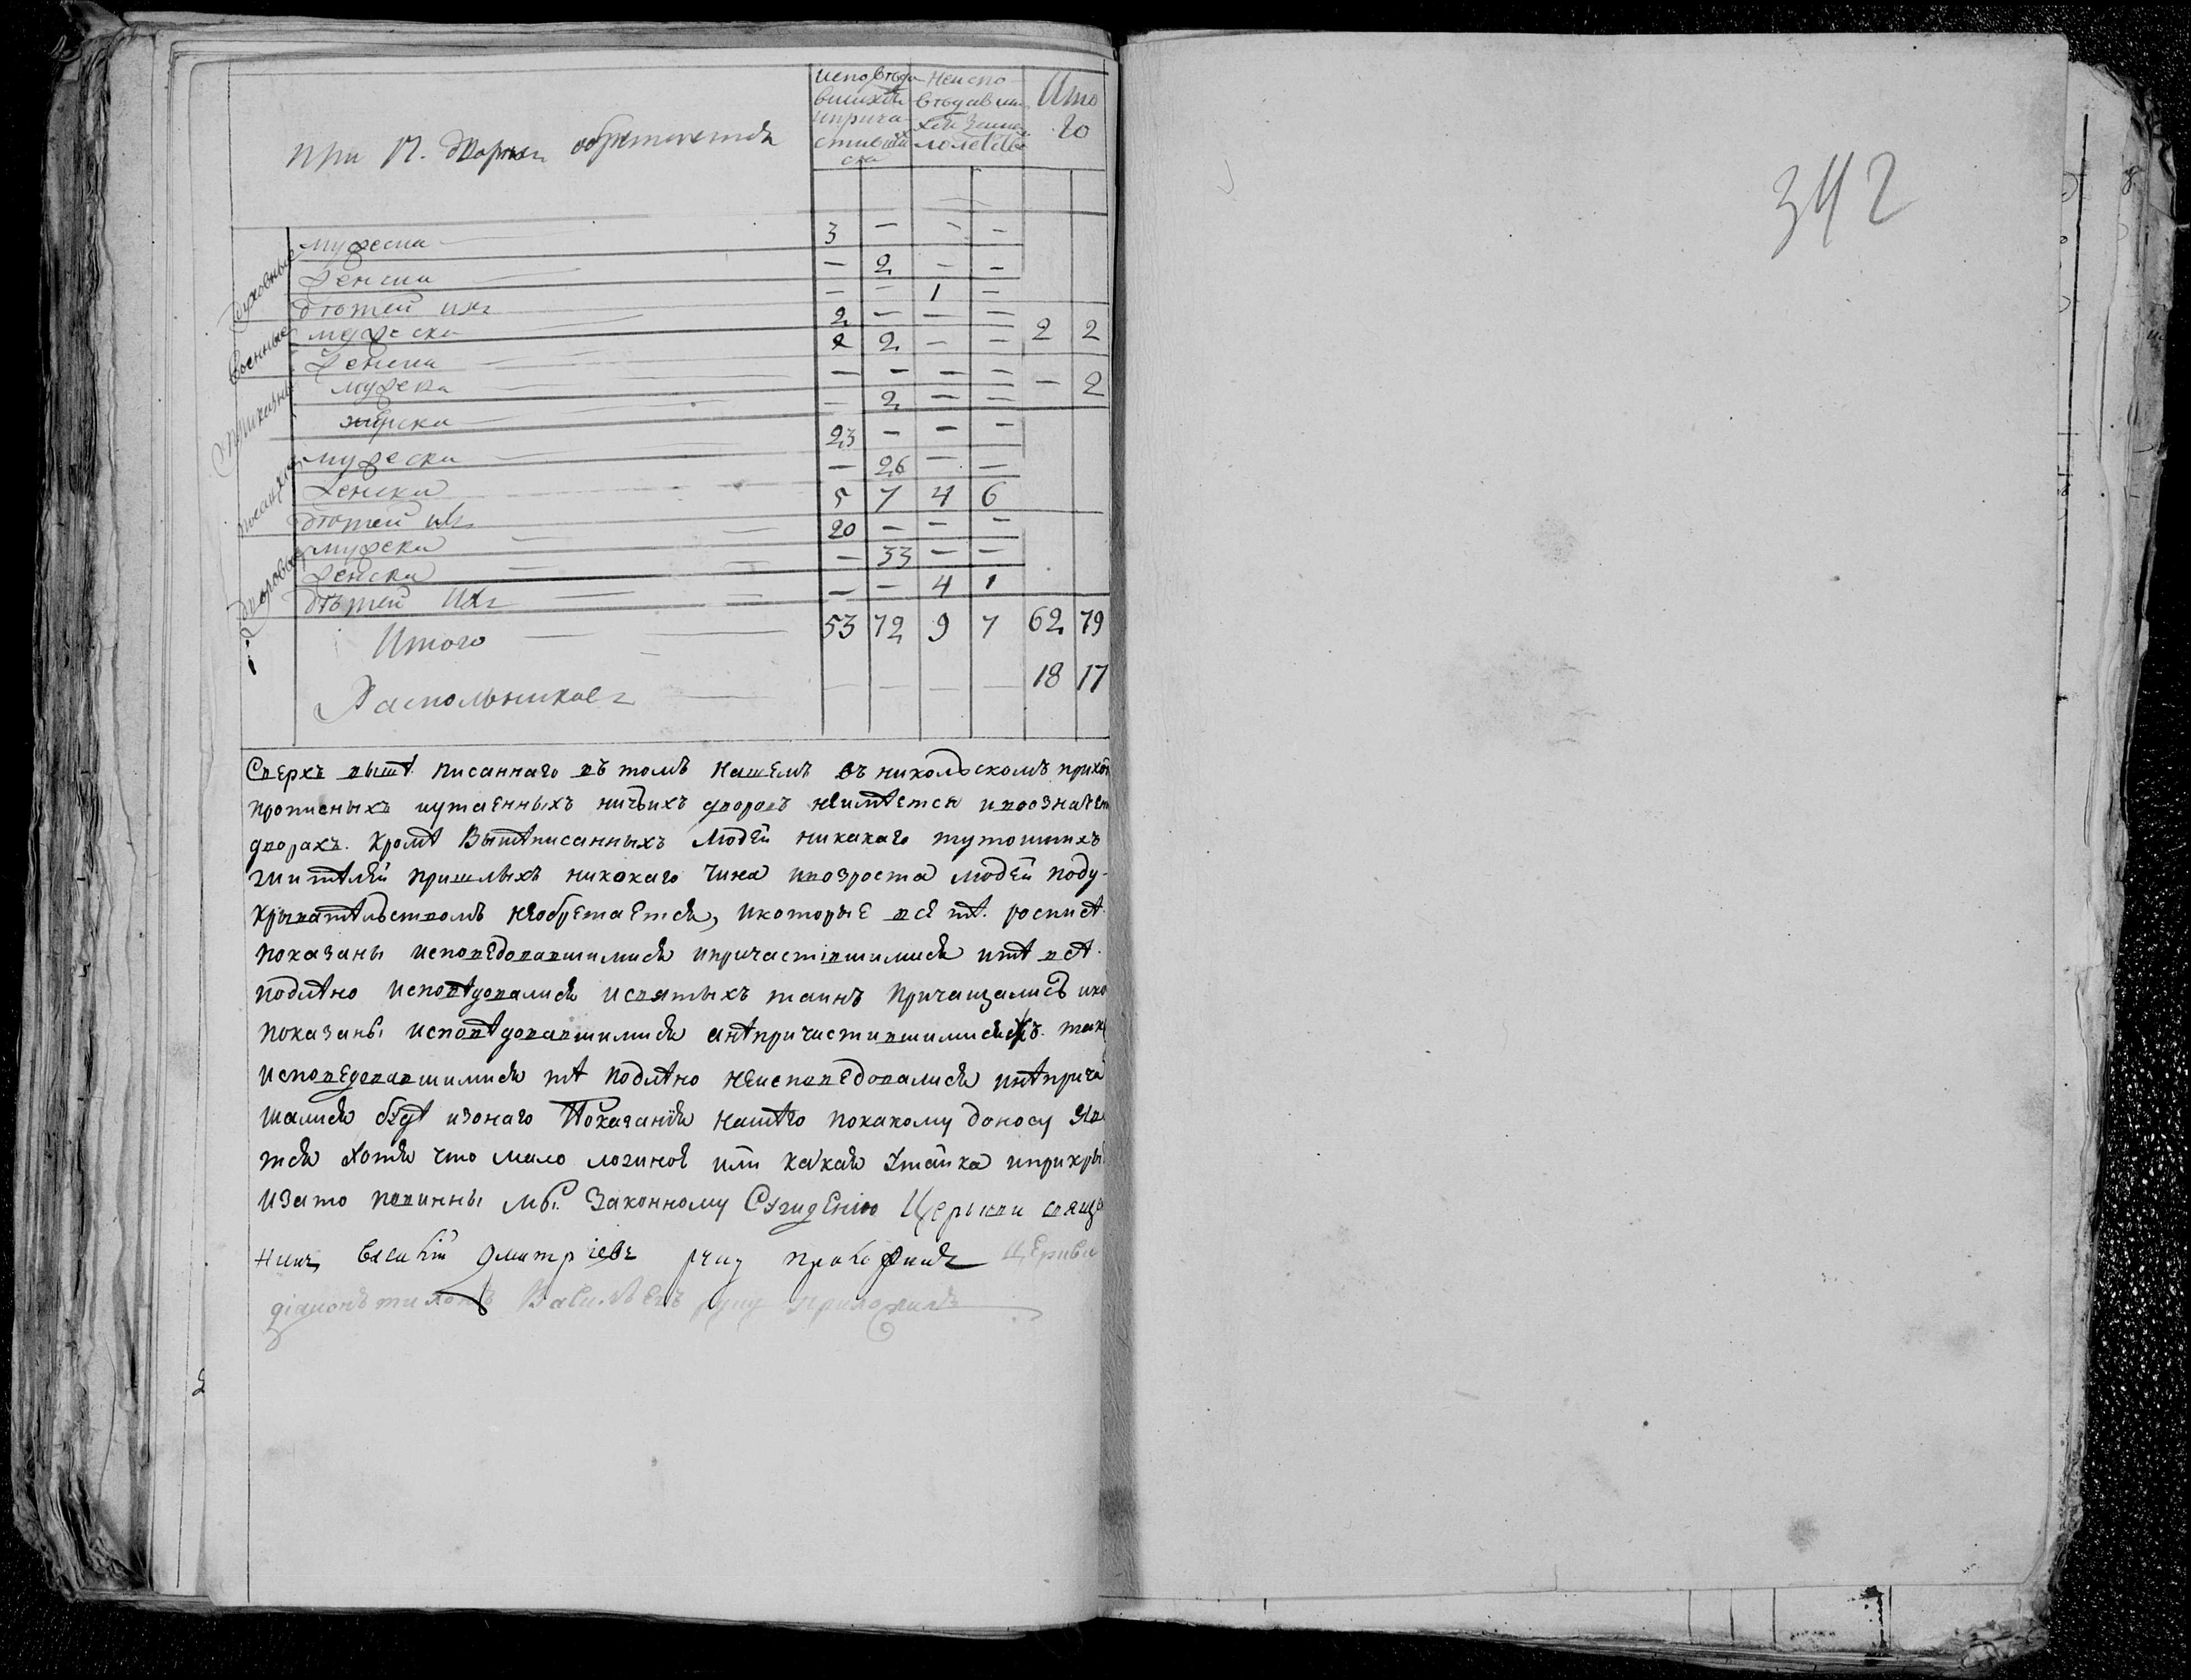 исповѣда Неиспо Ито
вшихся вѣдавши го
иприча хся Замa
стивших лолетством
ся
при П. обретается
Духовныя мужеска 3 — — —
женска — 2 — —
дѣтей ихъ — — 1 —
Военныя мужеска 2 — — — 2 2
женска 2 2 — —
Приказны мужеска — — — — — 2
женска — 2 — —
Посацкия мужеска 23 — — —
женска — 26 — —
дѣтей ихъ 5 7 4 6
Дворовыя мужеска 20 — — —
женска — 33 — —
дѣтей ихъ — — 4 1
Итого 53 72 9 7 62 79
Раскольниковъ — — — — 18 17
Сверхъ выше писаннаго въ томъ нашемъ въ никольскомъ прихо
прописныхъ иутаенныхъ ничьихъ дворовъ неимѣется ивоозначен
дворахъ. кромѣ Вышеписанныхъ людей никакаго тутошнихъ
жителей пришлыхъ никокаго чина ивозроста людей поду-
крывателствомъ необретается, икоторые все тѣ. росписѣ
показаны исповедовавшимися ипричастившимися итѣ всѣ.
подлѣно исповѣдовалися исвятыхъ таинъ причащались ико
показаны исповѣдовавшимися анѣпричистившимися. такъ
исповедовавшимися тѣ подлѣно неисповедовалися инѣприча
шалися будѣ изонаго Показания нашѣго покакому доносу Яви
тся хотя что мало ложиное или какая Утайка иприкры
изато повинны мы Законному Суждению Церькви свяще
никъ Василий Дмитриевъ руку приложилъ Церкви
диаконъ тихонъ Васильевъ руку приложилъ
342